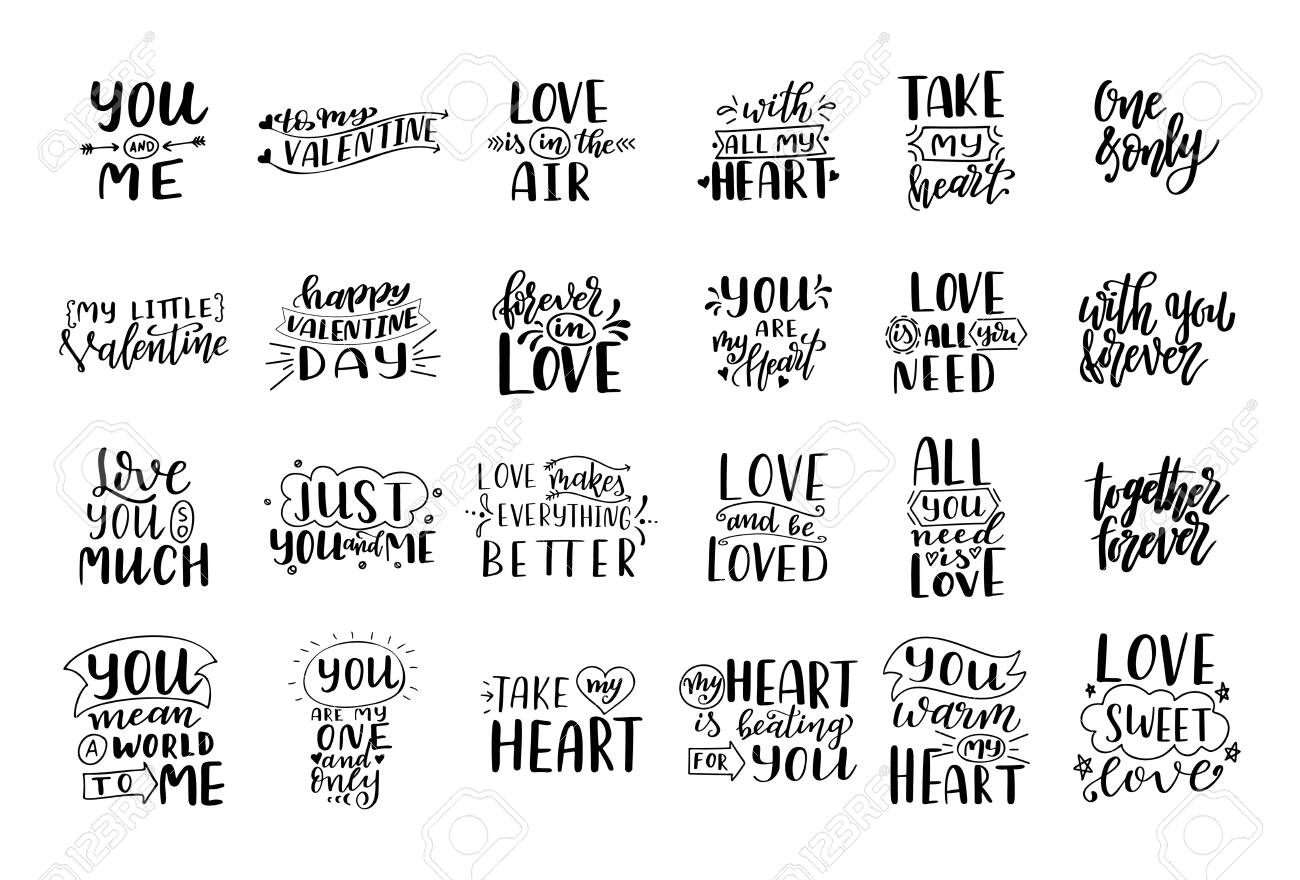 YOU
AND
ME
to my
VALENTINE
LOVE
is in the
AIR
with
ALL MY
HEART
TAKE
MY
heart
One
& only
{MY LITTLE}
Valentine
happy
VALENTINE
DAY
forever
in
LOVE
YOU
ARE
my Heart
LOVE
is ALL you
NEED
with you
forever
Love
YOU SO
MUCH
JUST
YOU and ME
LOVE makes
EVERYTHING
BETTER
LOVE
and be
LOVED
ALL
YOU
need
is
LOVE
together
forever
YOU
mean
A WORLD
TO ME
YOU
ARE MY
ONE
and
only
TAKE my
HEART
my HEART
is beating
FOR YOU
YOU
warm
my
HEART
LOVE
SWEET
love
123RF